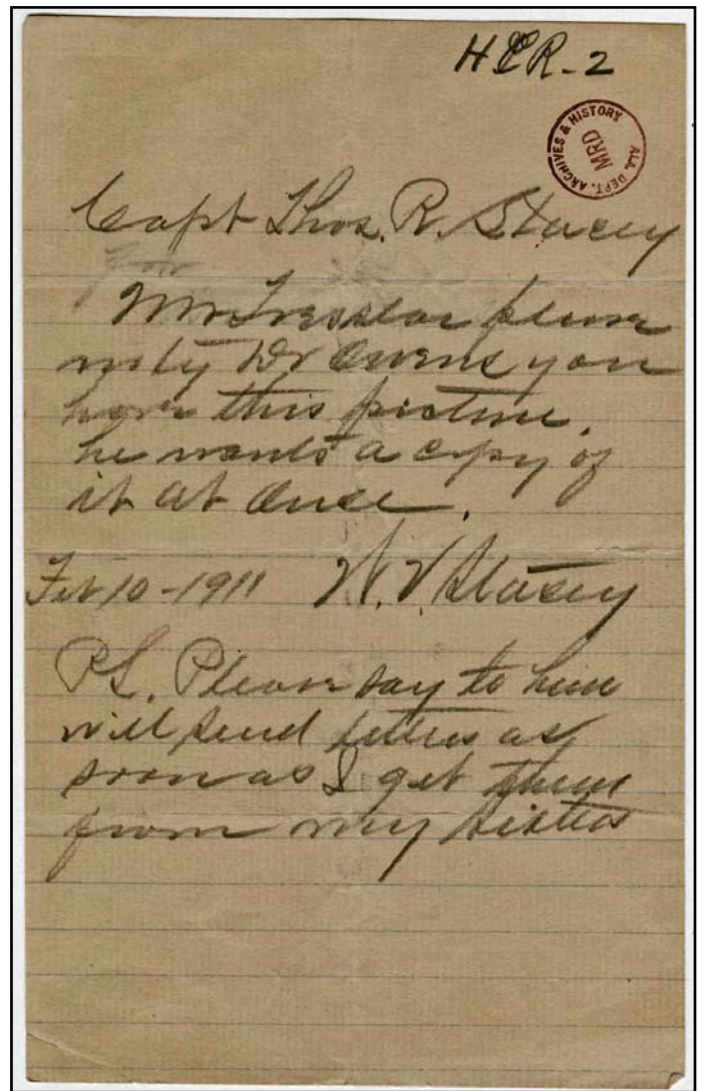 HPR-2
ALA. DEPT. ARCHIVES & HISTORY
MRD
Capt Thos. R. Stacey
for
Mr Tresslar please
notify Dr Owens you
have this picture.
he wants a copy of
it at once.
Feb 10-1911 W. V. Stasey
PS. Please say to him
will send letters as
soon as I get them
from my sister